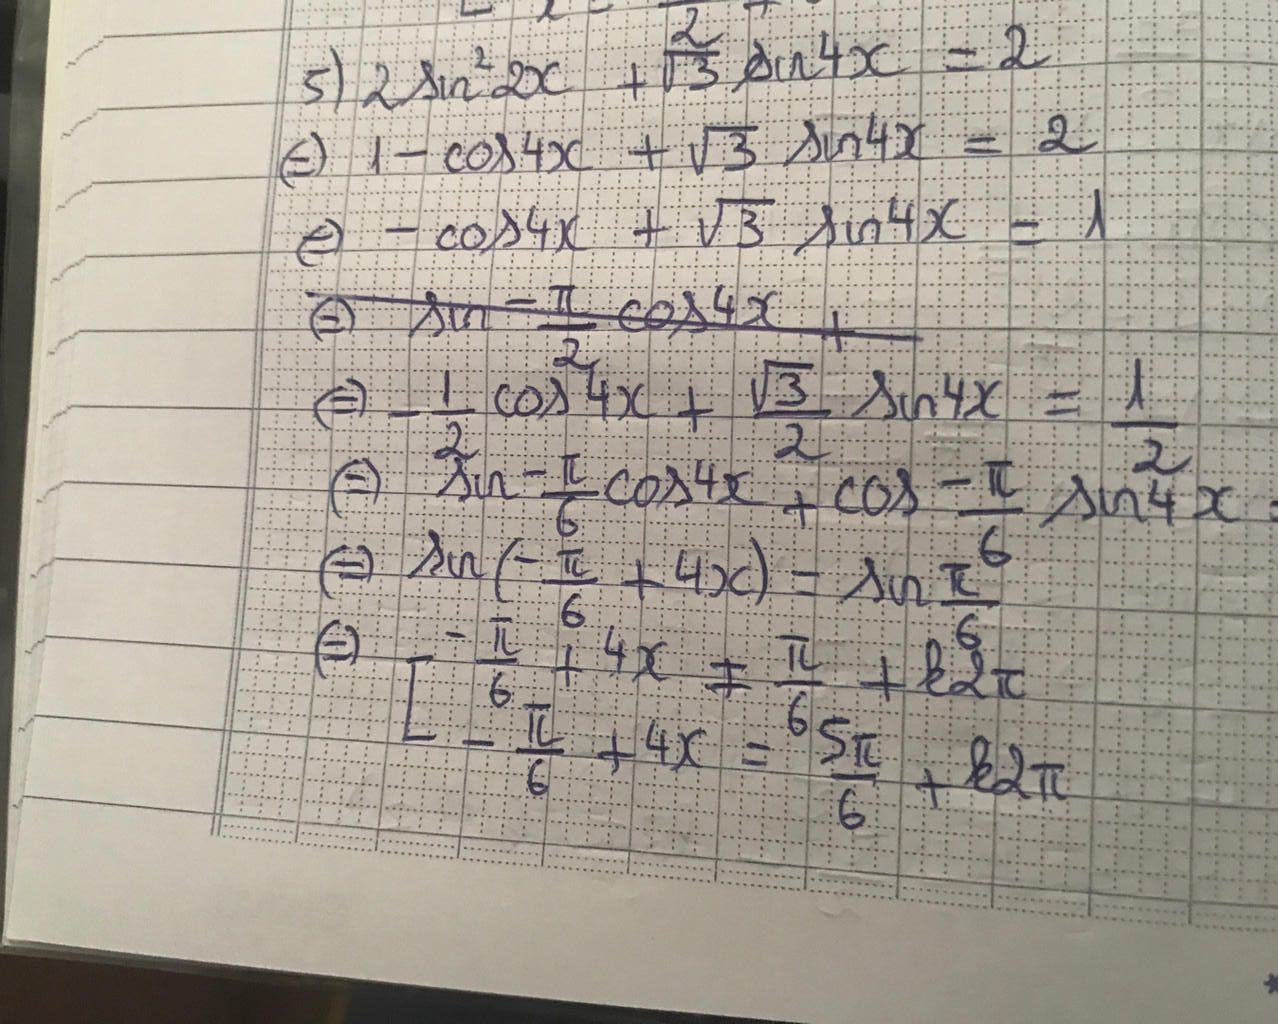 5) 2 sin²2x + √3 sin4x = 2
⇔ 1 - cos4x + √3 sin4x = 2
⇔ - cos4x + √3 sin4x = 1
⇔ sin -π/2 cos4x +
⇔ -1/2 cos4x + √3/2 sin4x = 1/2
⇔ sin -π/6 cos4x + cos -π/6 sin4x =
⇔ sin(-π/6 + 4x) = sin π/6
⇔ [ -π/6 + 4x = π/6 + k2π
-π/6 + 4x = 5π/6 + k2π